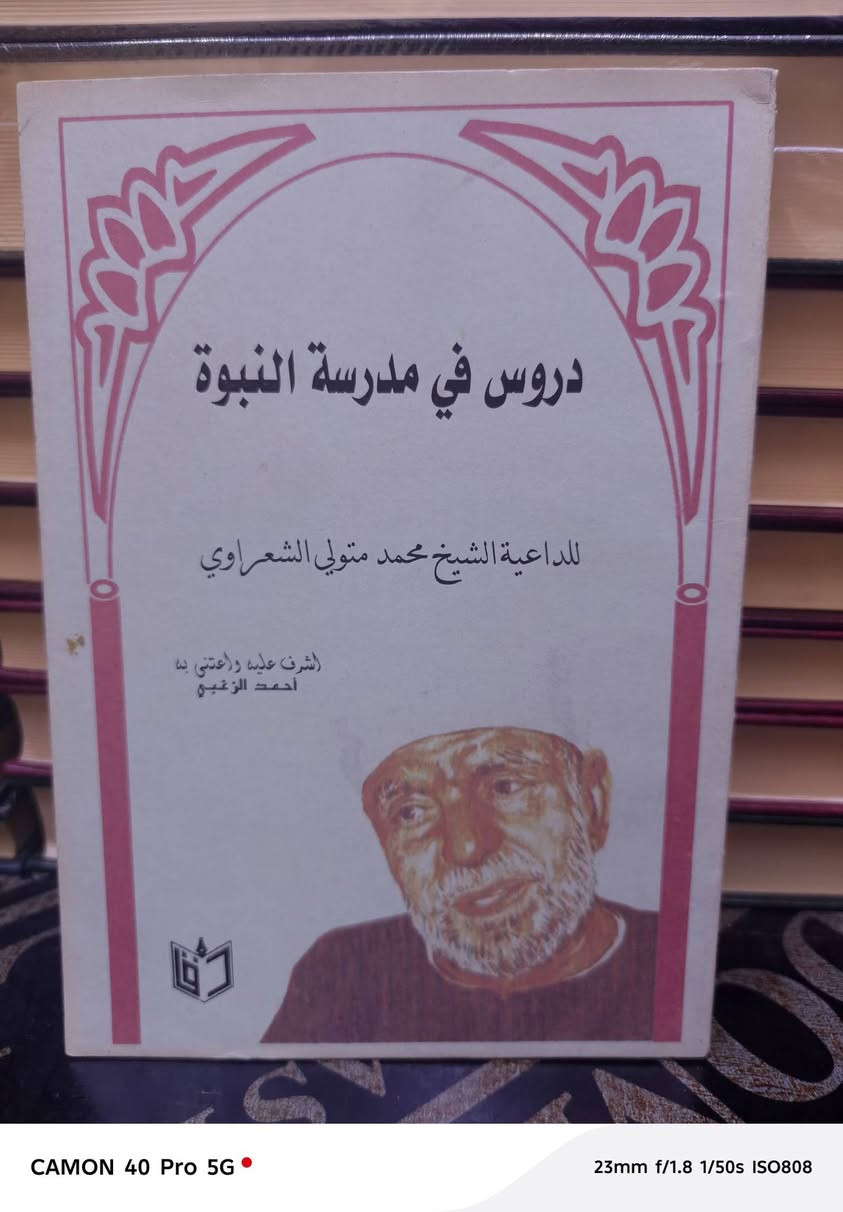 دروس في مدرسة النبوة
للداعية الشيخ محمد متولي الشعراوي
أشرف عليه واعتنى به
أحمد الزعبي
CAMON 40 Pro 5G
23mm f/1.8 1/50s ISO808